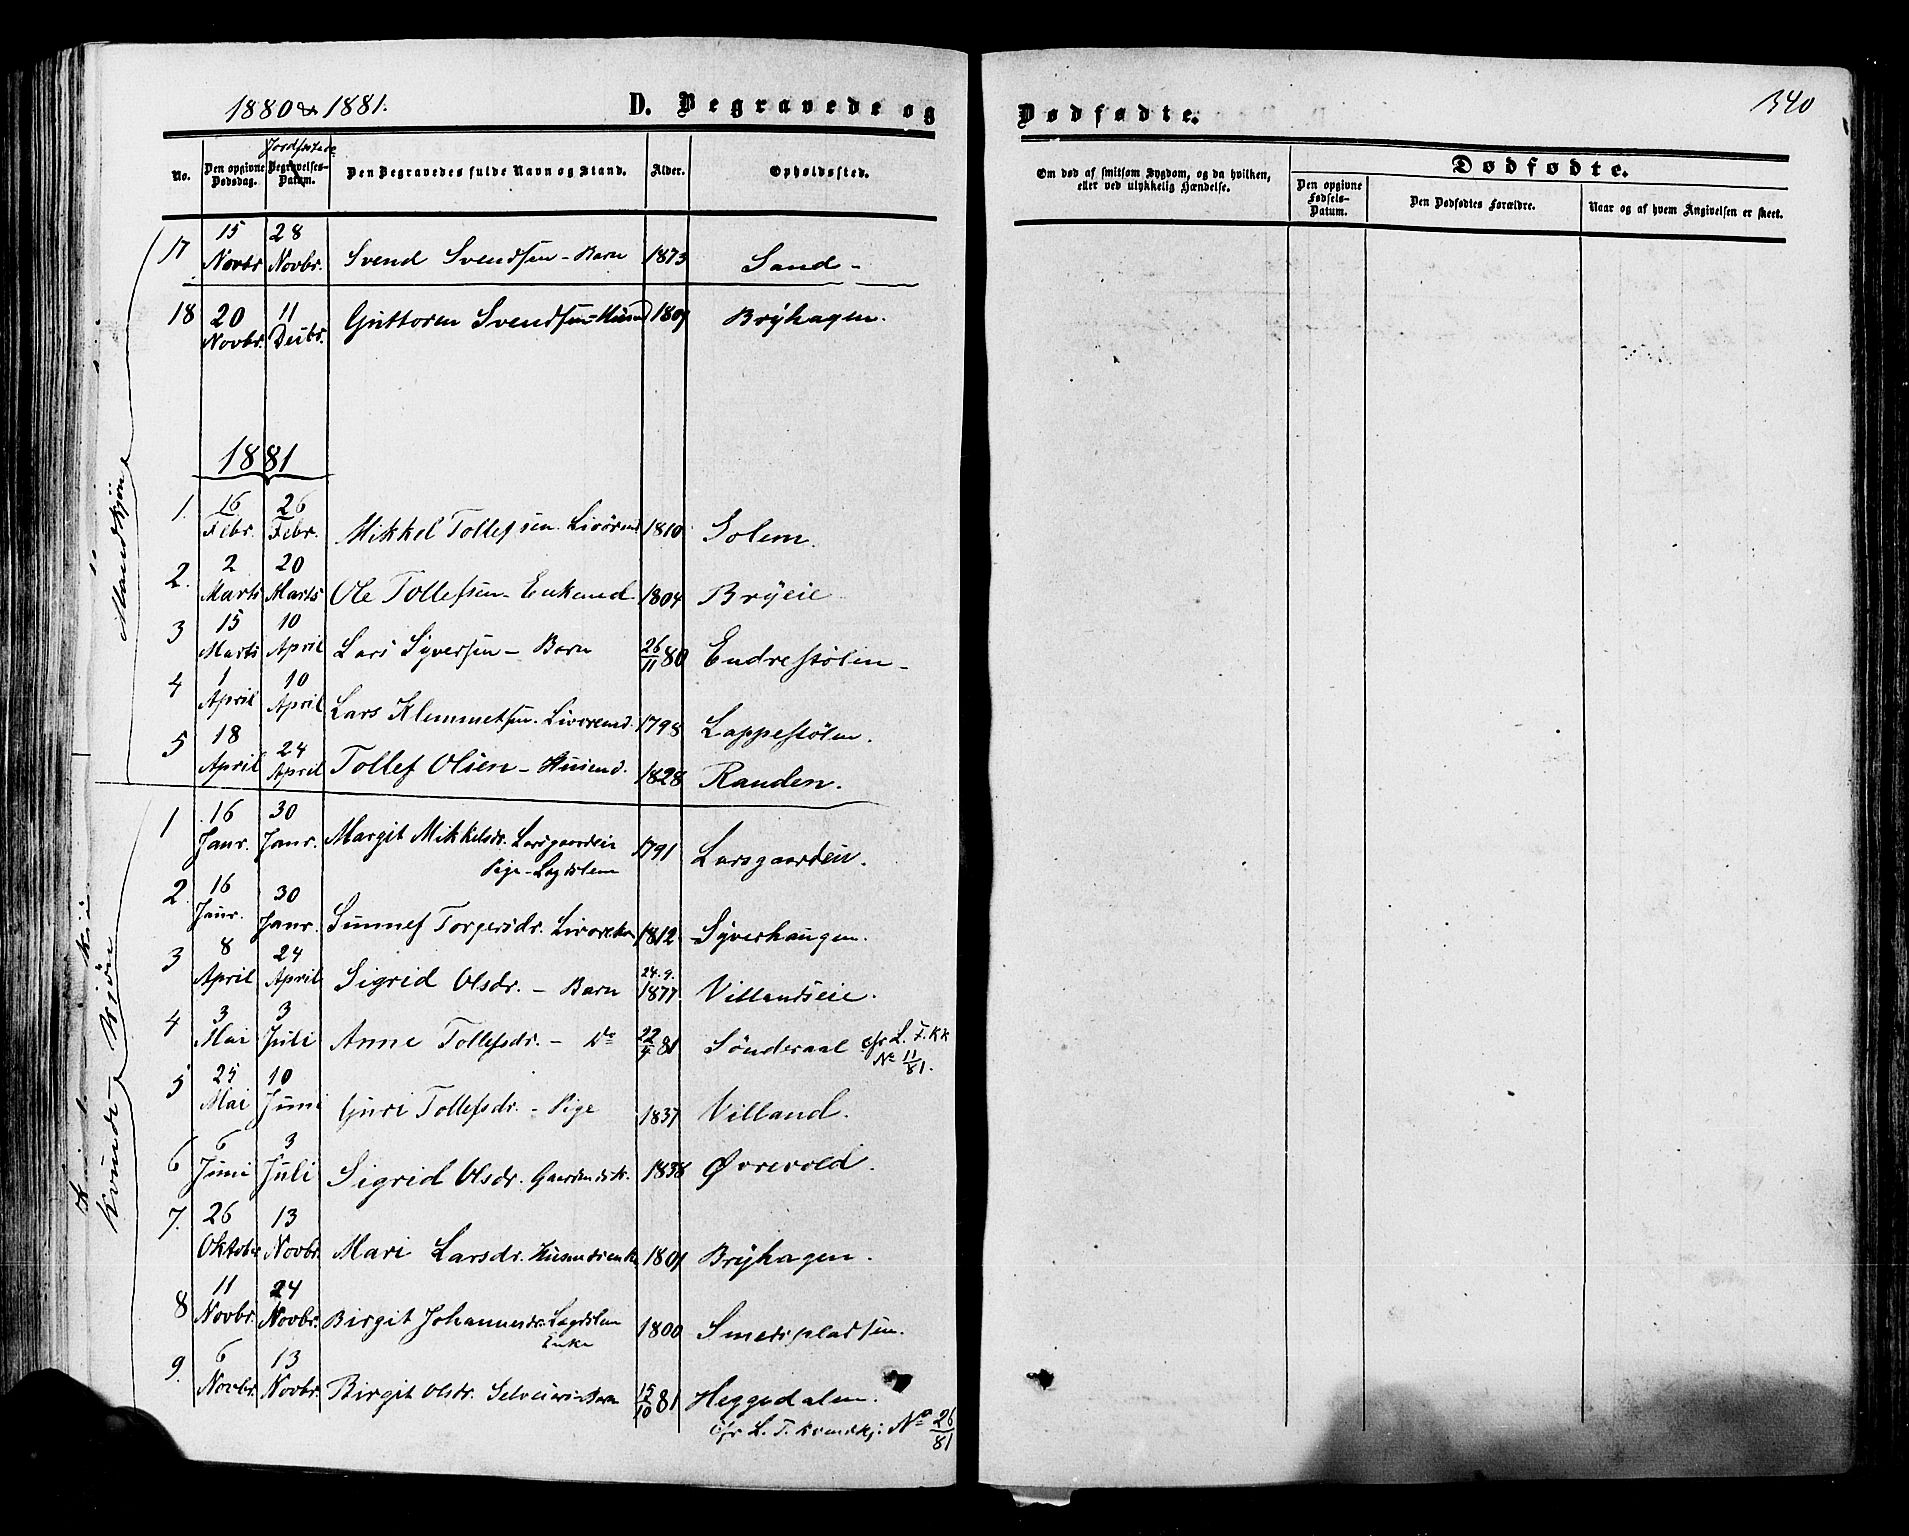 1880 & 1881.
D. Begravede og
Dødfødte.
340
No.
Den opgivne Dødsdag.
Jordfæstede
Begravelses-Datum.
Den Begravedes fulde Navn og Stand.
Alder.
Opholdssted.
Om død af smitsom Sygdom, og da hvilken, eller ved ulykkelig Hændelse.
Dødfødte.
Den opgivne Fødsels-Datum.
Den Dødfødtes Forældre.
Naar og af hvem Angivelsen er skeet.
Mandkjøn
17 15 Novbr 28 Novbr. Svend Svendsen - Barn 1873 Sand -
18 20 Novbr. 11 Decbr. Guttorm Svendsen - Husmd 1801 Brÿhagen.
1881
1. 16 Febr. 26 Febr. Mikkel Tollefsen. Livørmd 1810 Solem.
2. 2 Marts 20 Marts Ole Tollefsen - Enkemd. 1804 Brÿeie
3 15 Marts 10 April Lars Syversen - Barn 26/11 80 Endrestølen -
4 1 April 10 April Lars Klemmetsen. Livøremd. 1798 Lappestølen.
5 18 April 24 April Tollef Olsen - Husmd. 1828 Randen.
Kvindekjøn
1 16 Janr. 30 Janr. Margit Mikkelsdr. Larsgaardeie 1791 Larsgaardeie.
Pige - Lægdslem
2. 16 Janr. 30 Janr. Sunnef Torgersdr. Livørekn 1812 Syverhaugen.
3 8 April 24 April Sigrid Olsdr. - Barn 24.9. 1877. Villandseie.
4 3 Mai 3 Juli Anne Tollefsdr. - Do 22/4 81 Sønderaal cfr L. F. KK
No 11/81.
5 25 Mai 10 Juni Guri Tollefsdr. - Pige 1837 Villand.
6 6 Juni 3 Juli Sigrid Olsdr. Gaardmdsk. 1838 Øvrevold.
7. 26 Oktober 13 Novbr. Mari Larsdr. Husmdsenke 1801 Brÿhagen.
8 11 Novbr. 24 Novbr. Birgit Johannesdr. Lægdslem 1800 Smedspladsen.
Enke
9. 6 Novbr. 13 Novbr. Birgit Olsdr. Selveiers Barn 15/10 81 Heggedalen.
cfr L. F. Kvindekj: No 26/81